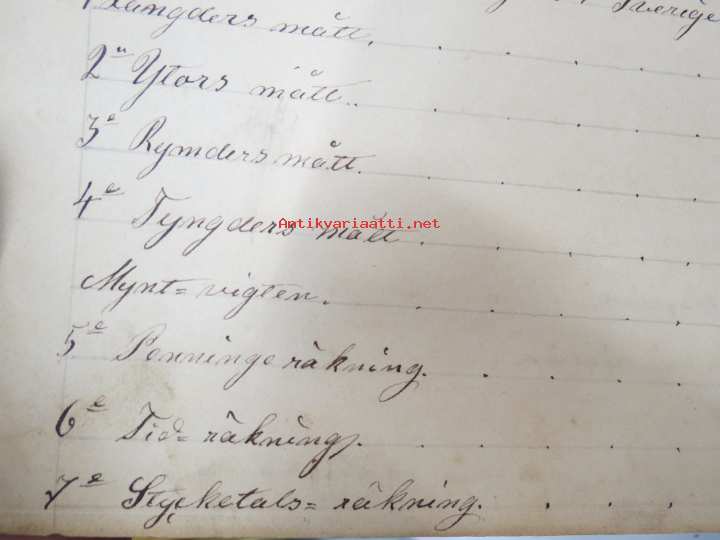 Sverige
Längders mått. . . . .
2a Ytors mått. . . . .
3e Rymders mått. . . . .
4e Tyngders mått . . . . .
Antikvariaatti.net
Mynt= vigten. . . . .
5e Penninge räkning. . . . .
6e Tid= räkning. . . . .
7e Stycketals= räkning. . . . .